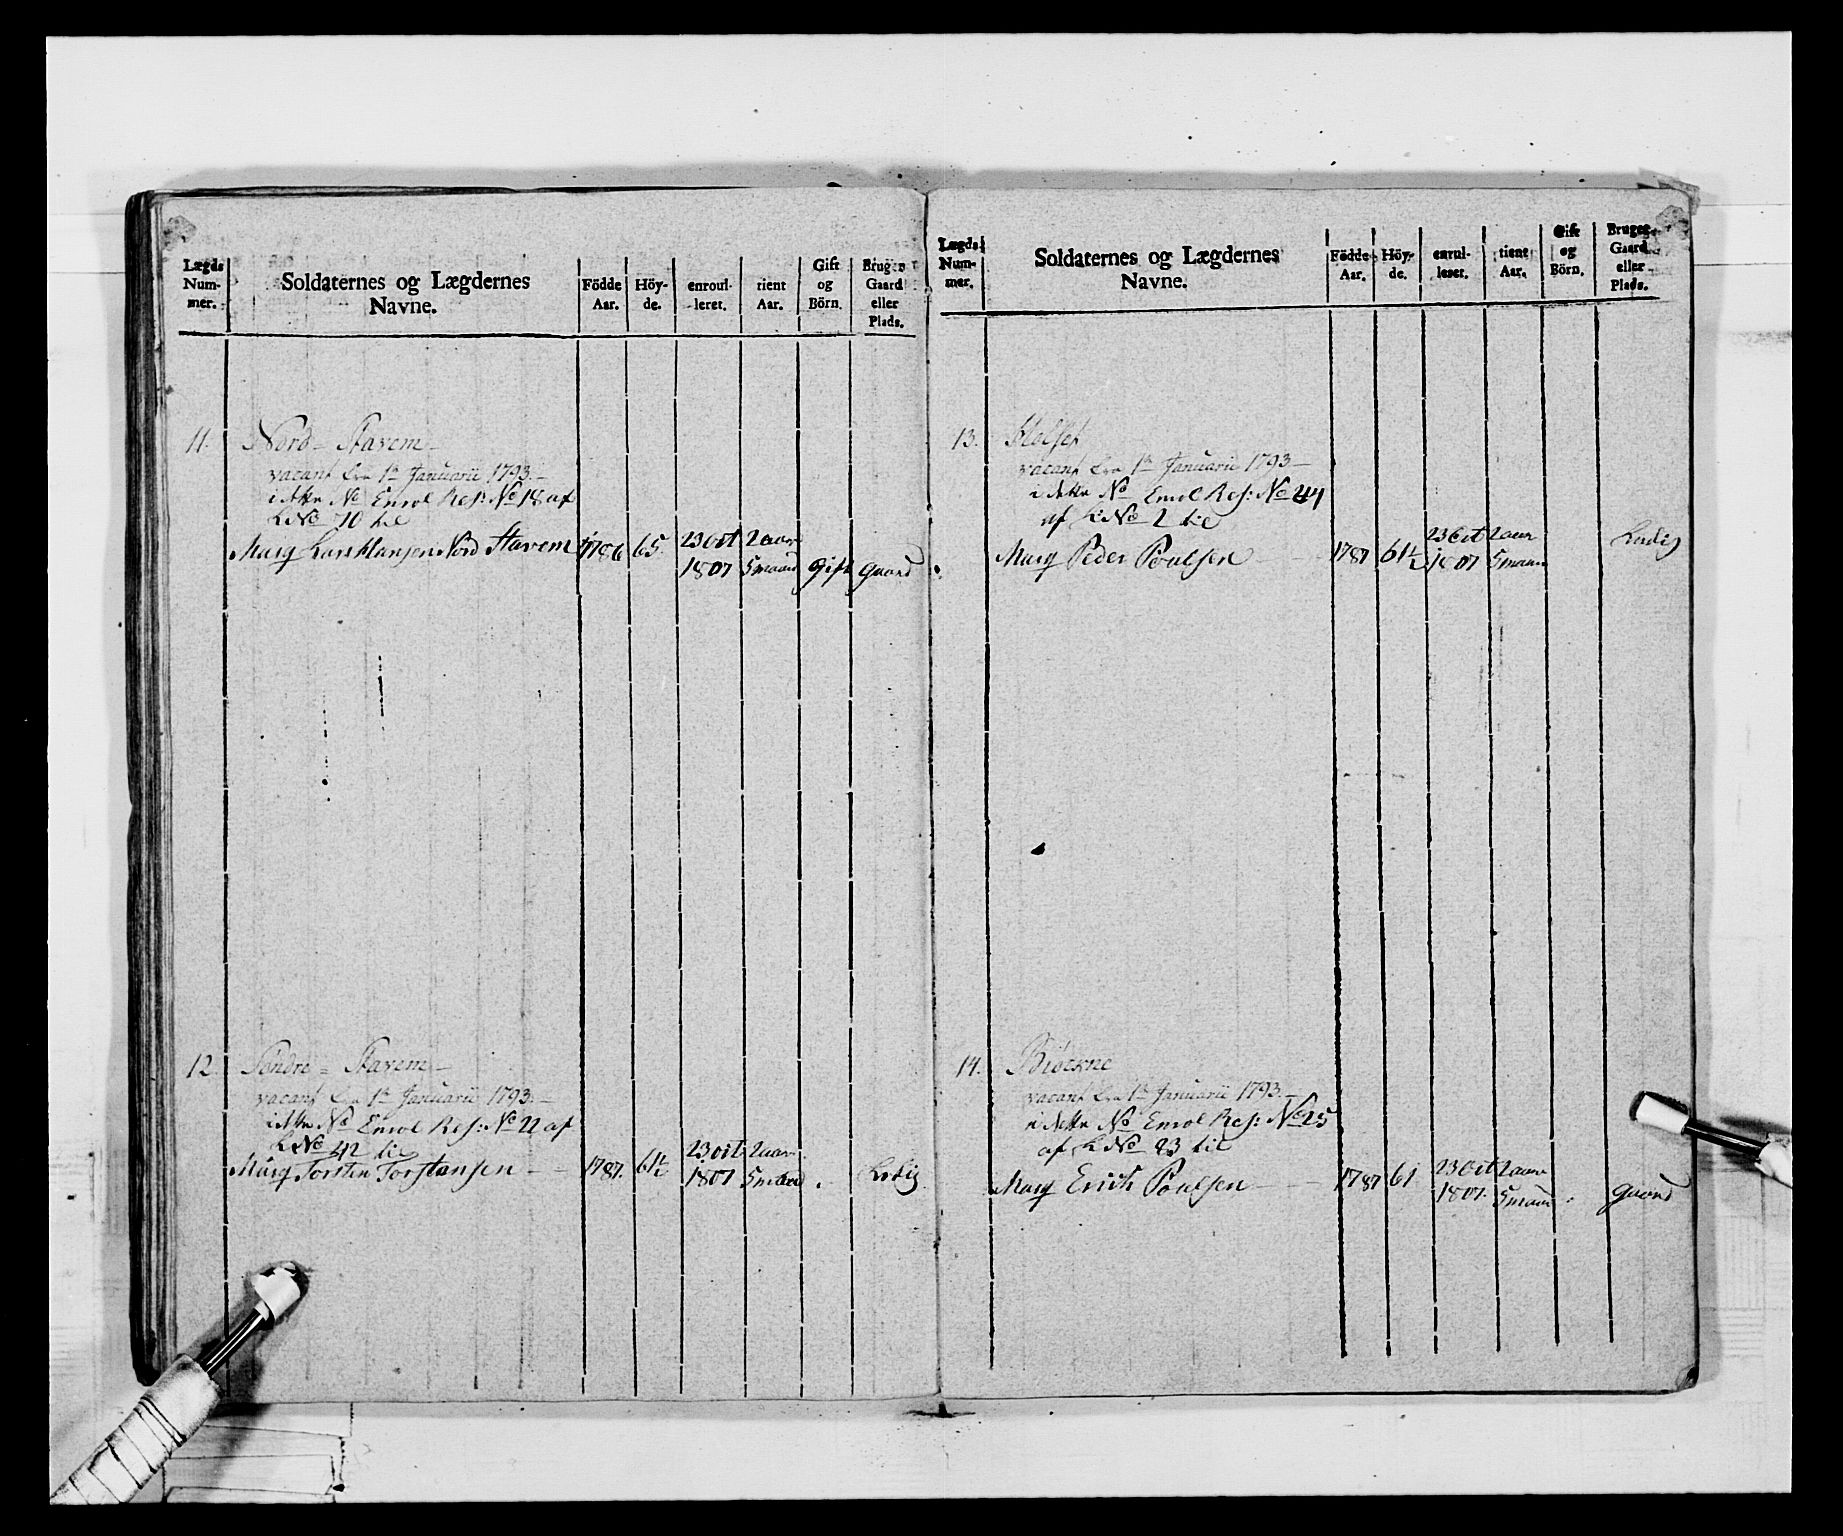 Lægds Num- mer.
Soldaternes og Lægdernes Navne.
Födde Aar.
Höy- de.
enroul- leret.
tient Aar.
Gift og Börn.
Bruger Gaard eller Plads.
11. Nord - Stavem -
vacant fra 1te Januarii 1793. -
i dette No Enrol Res: No 18 af
L No 70 til
Musq Lars Hansen Nord Stavem 1786 65 23 oct 1807 2 aar 5 maand gift gaard
12. Söndre = Stavem -
vacant fra 1te Januarii 1793. -
i dette No Enrol Res: No 22 af
L No 42 til
Musq Torsten Torstensen - - 1787. 61½ 23 oct 1807 2 aar 5 maand . Ledig
Lægds Num- mer.
Soldaternes og Lægdernes Navne.
Födde Aar.
Höy- de.
enrul- leret.
tient Aar.
Gift og Börn.
Bruger Gaard eller Plads.
13. Holset
vacant fra 1te Januarii 1793 -
i dette No Enrol Res: No 44
af L No 2 til
Musq Peder Poulsen 1787 61½ 23 Oct 1807 2 aar 5 maan Ledig
14. Biöerne
vacant fra 1te Januarii 1793. -
i dette No Enrol Res: No 25
af L No 23 til
Musq Erich Poulsen - - 1787 61 23 Oct 1807. 2 aar 5 maan gaard